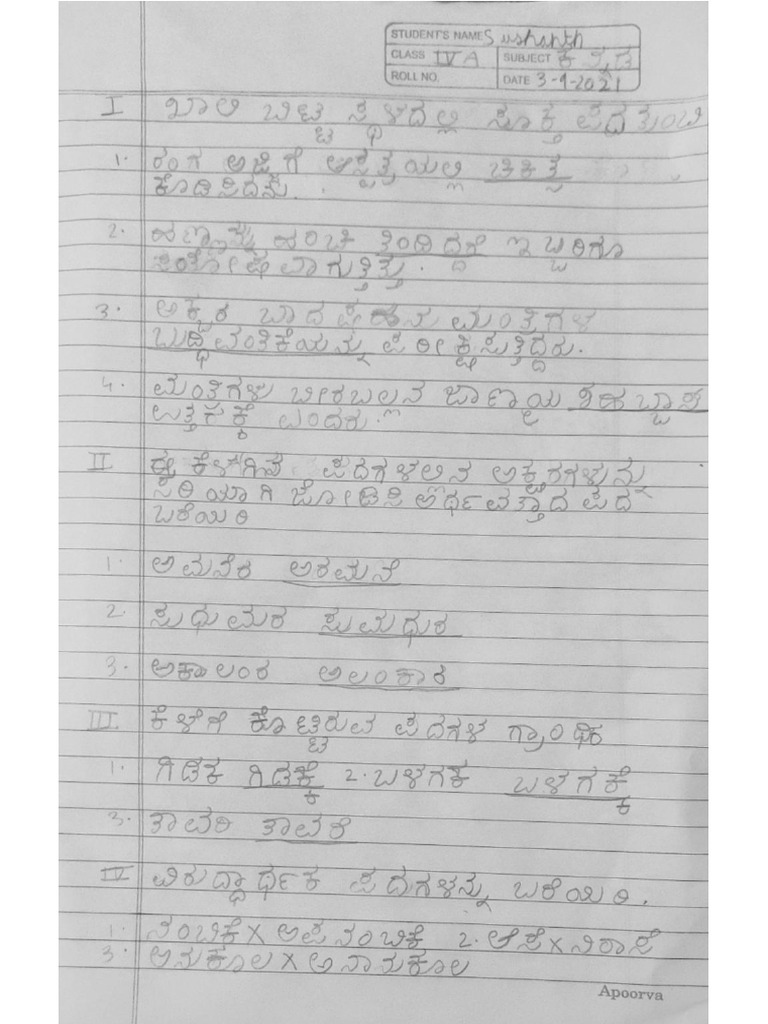 STUDENT'S NAME Sushanth
CLASS IV A SUBJECT ಕನ್ನಡ
ROLL NO. DATE 3-9-2021
I ಖಾಲಿ ಬಿಟ್ಟ ಸ್ಥಳದಲ್ಲಿ ಸೂಕ್ತ ಪದ ತುಂಬಿ
1. ರಂಗ ಅಜ್ಜಿಗೆ ಆಸ್ಪತ್ರೆಯಲ್ಲಿ ಚಿಕಿತ್ಸೆ
ಕೊಡಿಸಿದನು.
2. ಹಣ್ಣನ್ನು ಹಂಚಿ ತಿಂದಿದ್ದಕ್ಕೆ ಇಬ್ಬರಿಗೂ
ಸಂತೋಷವಾಗುತ್ತಿತ್ತು.
3. ಅಕ್ಬರ ಬಾದಷಹನು ಮಂತ್ರಿಗಳ
ಬುದ್ಧಿವಂತಿಕೆಯನ್ನು ಪರೀಕ್ಷಿಸುತ್ತಿದ್ದರು.
4. ಮಂತ್ರಿಗಳು ಬೀರಬಲ್ಲನ ಜಾಣ್ಮೆಯ
ಉತ್ತರಕ್ಕೆ ಎಂದರು.
II ಈ ಕೆಳಗಿನ ಪದಗಳಲ್ಲಿನ ಅಕ್ಷರಗಳನ್ನು
ಸರಿಯಾಗಿ ಜೋಡಿಸಿ ಅರ್ಥವತ್ತಾದ ಪದ
ಬರೆಯಿರಿ
1. ಅಮನೆರ ಅರಮನೆ
2. ಸುಧುಮರ ಸುಮಧುರ
3. ಅಕಾಲಂರ ಅಲಂಕಾರ
III ಕೆಳಗೆ ಕೊಟ್ಟಿರುವ ಪದಗಳ ಗ್ರಾಂಥಿಕ
1. ಗಿಡಕ ಗಿಡಕ್ಕೆ 2. ಬಳಗಕ ಬಳಗಕ್ಕೆ
3. ತಾವರಿ ತಾವರೆ
IV ವಿರುದ್ಧಾರ್ಥಕ ಪದಗಳನ್ನು ಬರೆಯಿರಿ.
1. ನಂಬಿಕೆ X ಅಪನಂಬಿಕೆ 2. ಆಸೆ X ನಿರಾಸೆ
3. ಅನುಕೂಲ X ಅನಾನುಕೂಲ
Apoorva